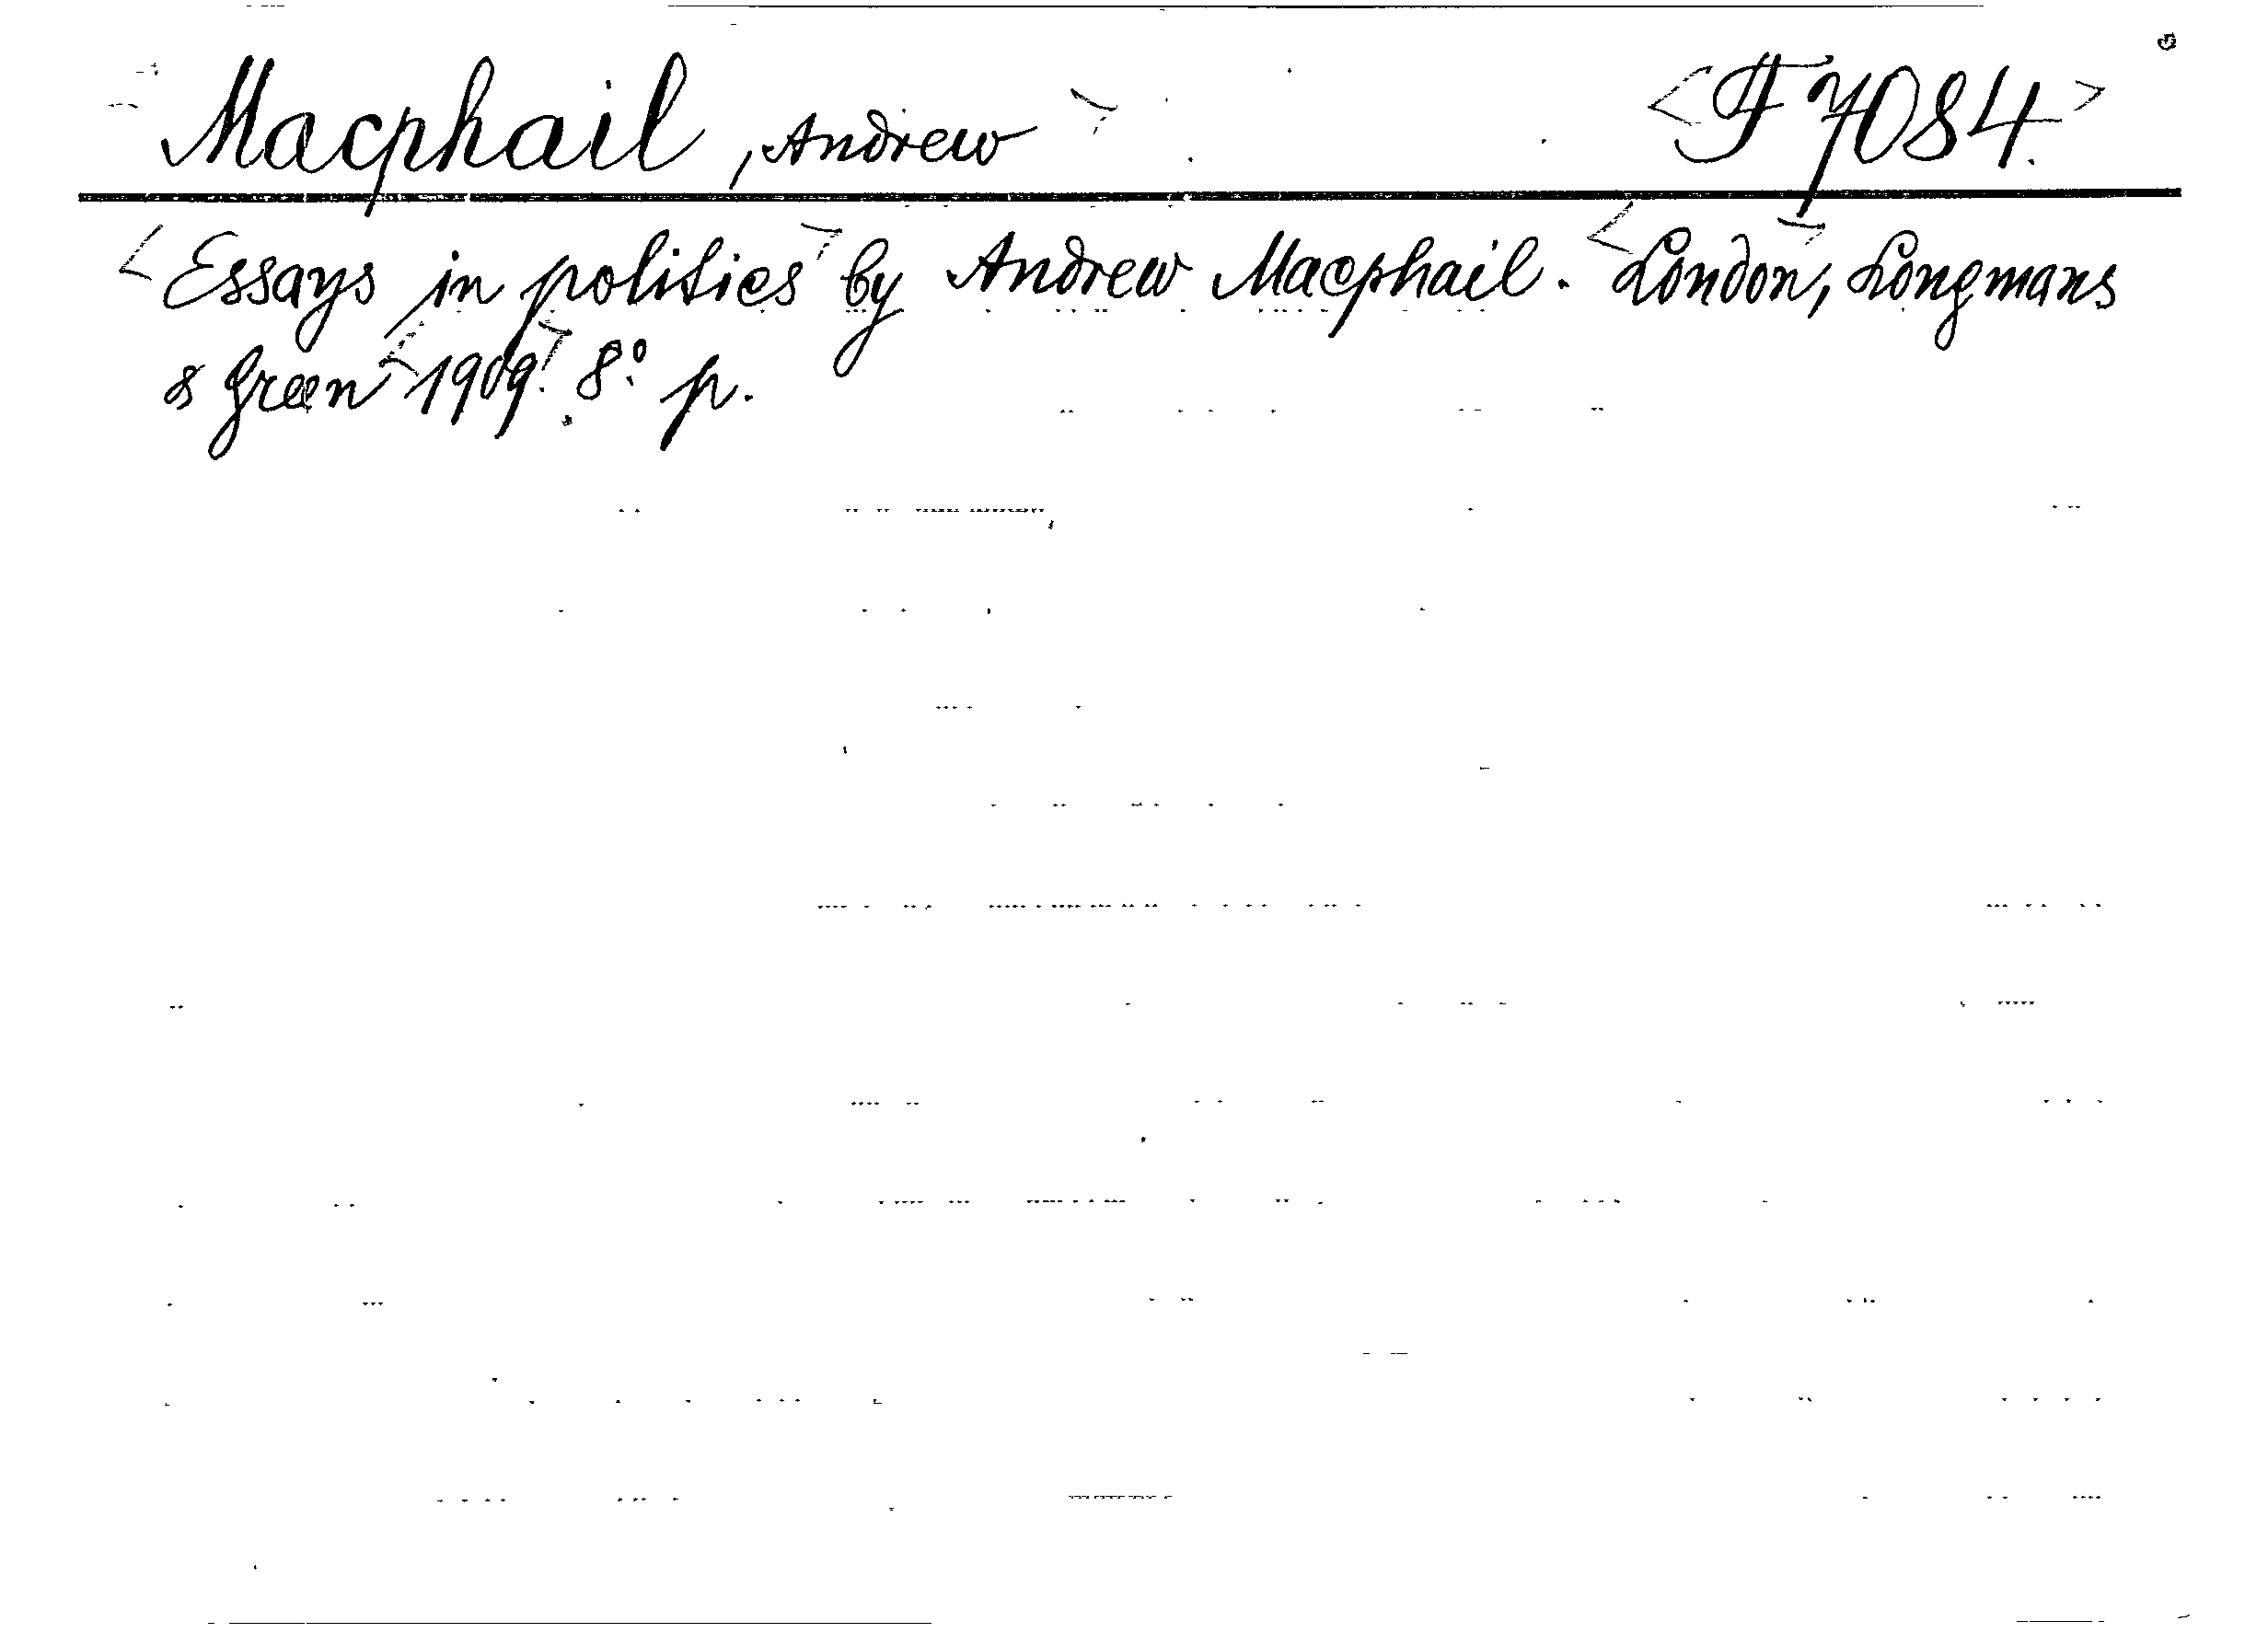 Macphail, Andrew <F7084.>
<Essays in politics> by Andrew Macphail. <London>, Longmans
& Green <1909.> 8.° p.